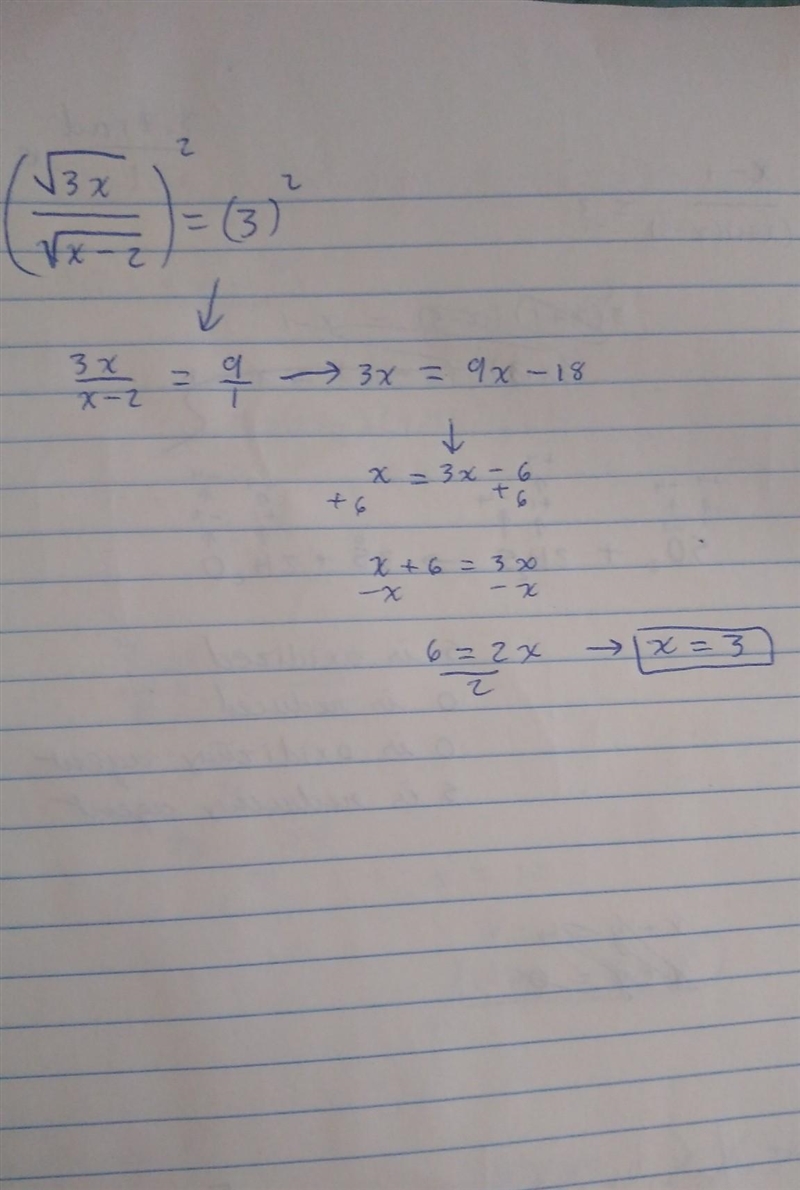 (√3x / √x-2)² = (3)²
↓
3x/x-2 = 9/1 → 3x = 9x - 18
↓
x = 3x - 6
+6 +6
x + 6 = 3x
-x -x
6 = 2x → x = 3
2